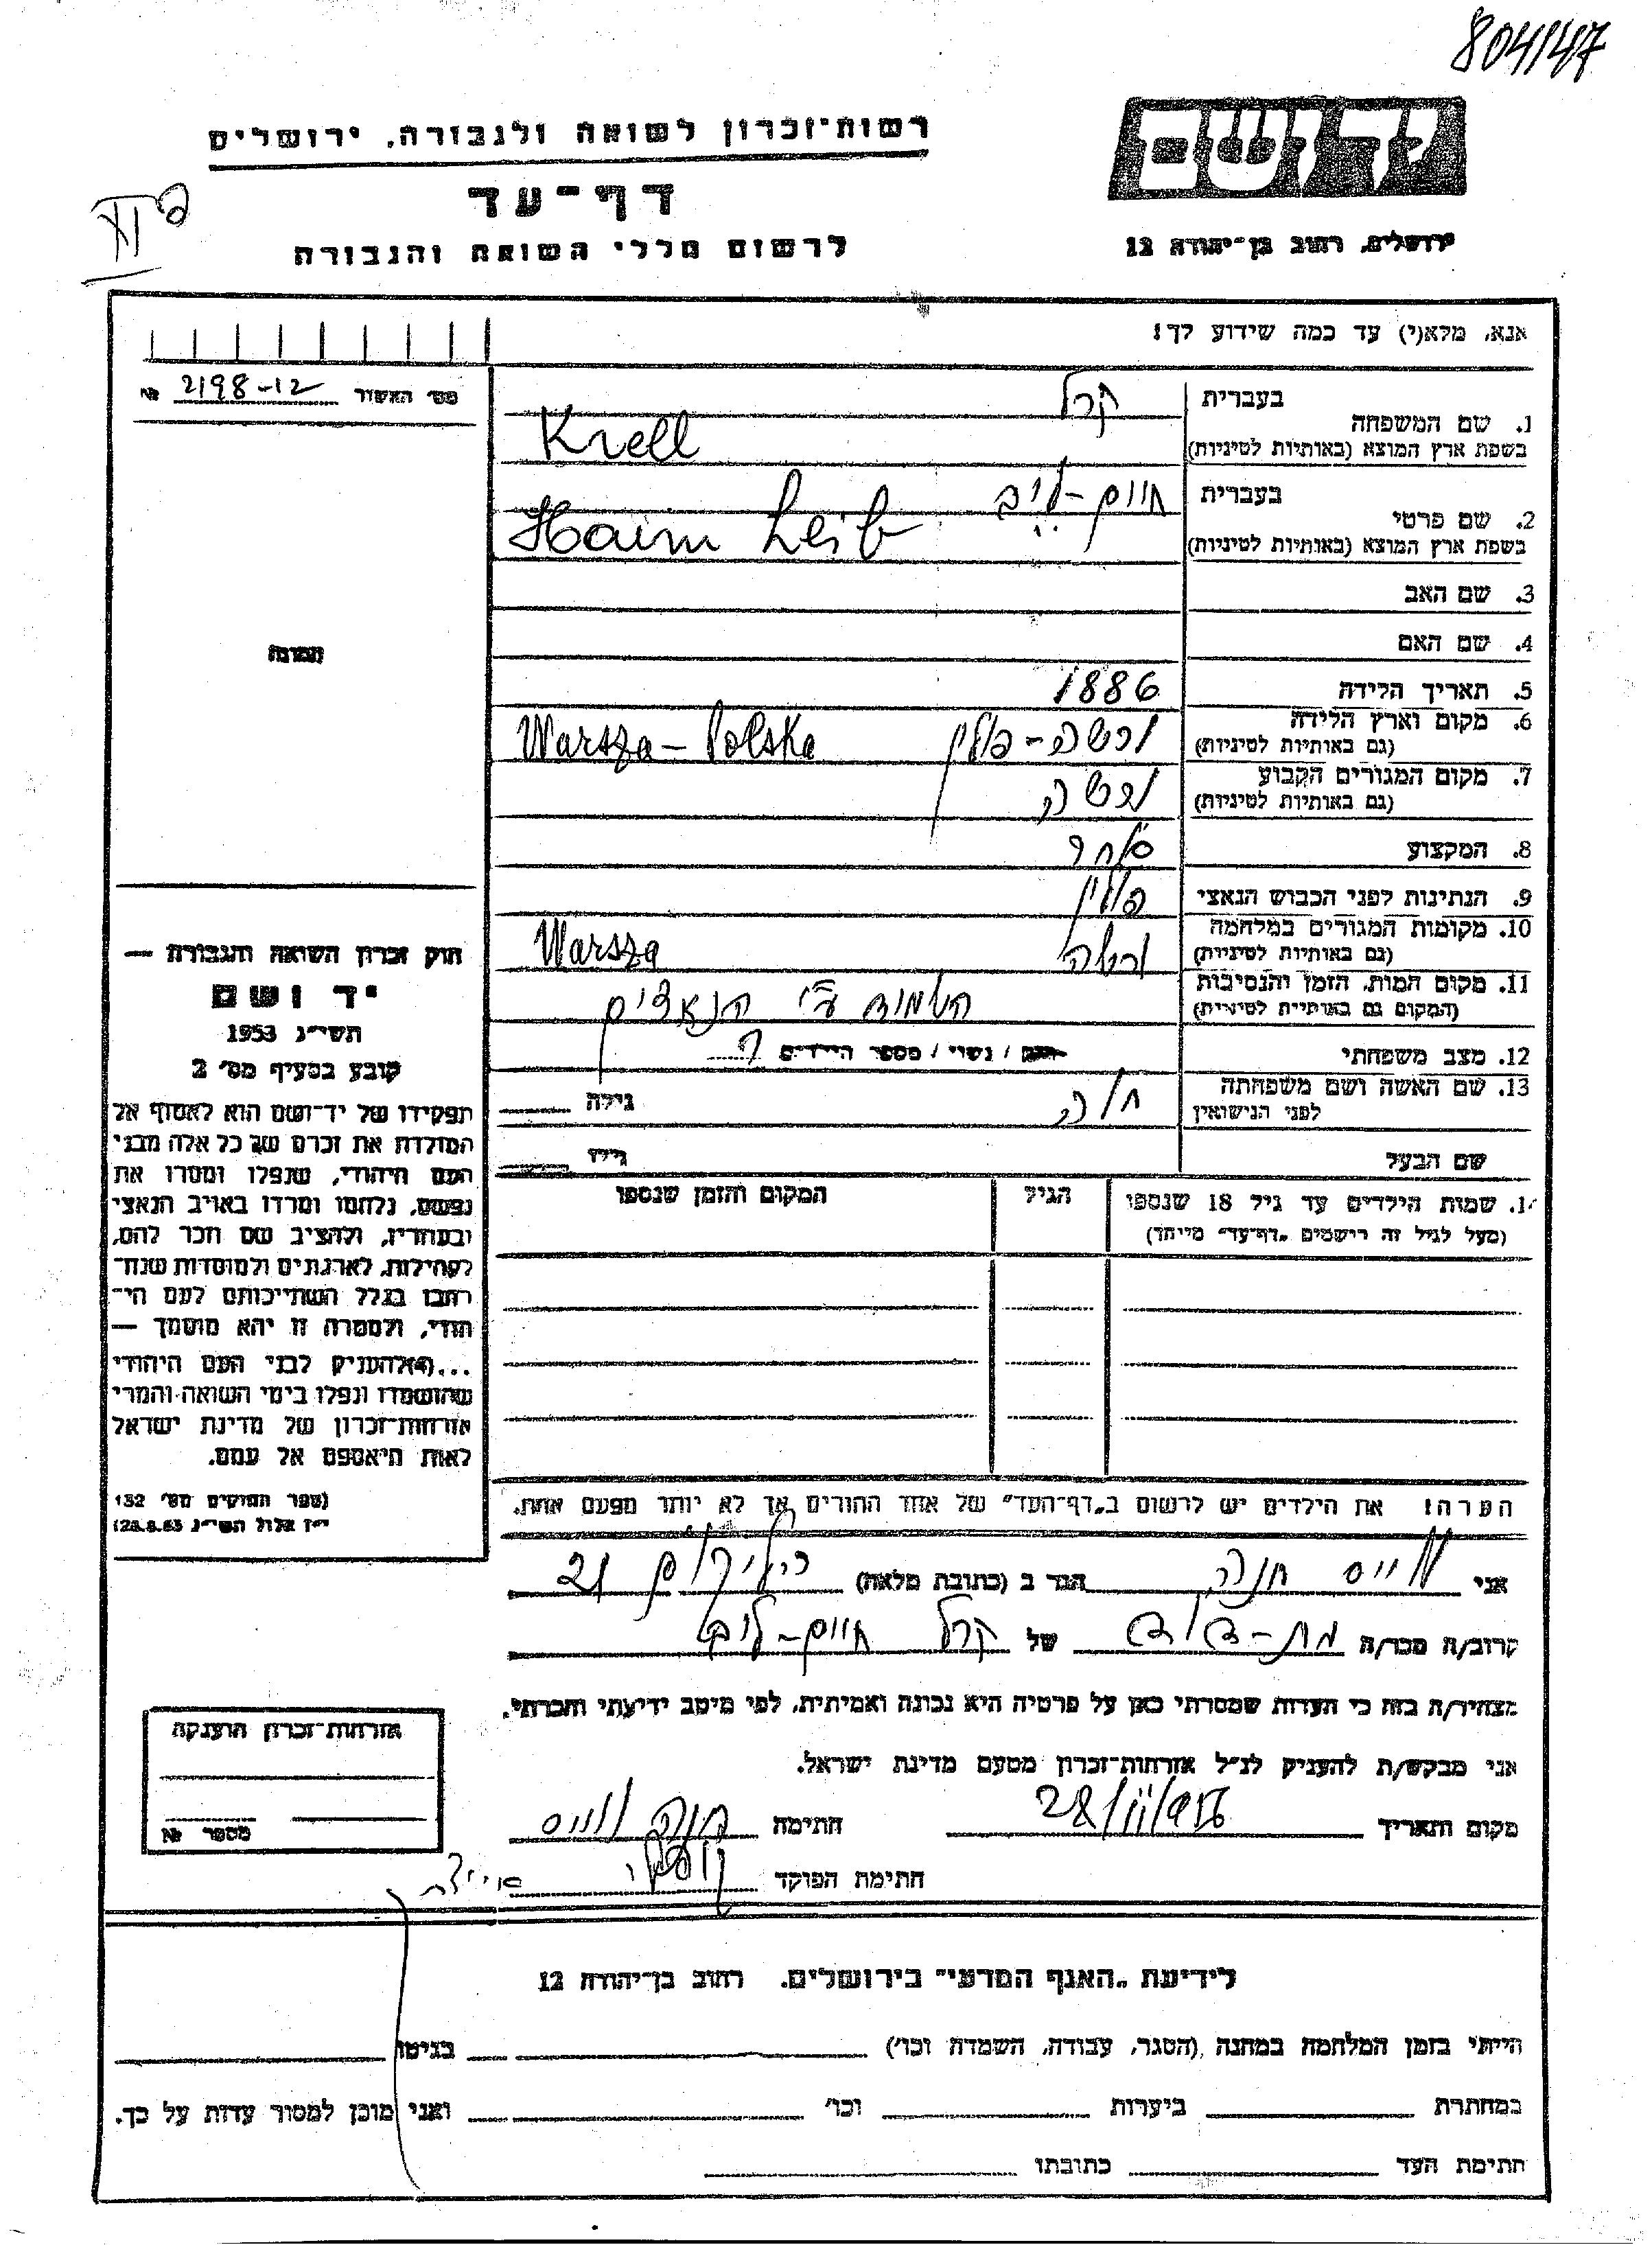 804/47
רשות־זכרון לשואה ולגבורה, ירושלים
יד ושם
דף־עד
לרשום חללי השואה והגבורה
ירושלים, רחוב בן־יהודה 12
אנא, מלא(י) עד כמה שידוע לך!
מס' האשור 2198-12 №
בעברית קרל
1. שם המשפחה
בשפת ארץ המוצא (באותיות לטיניות) Krell
בעברית חיים-לייב
2. שם פרטי
בשפת ארץ המוצא (באותיות לטיניות) Haim Leib
3. שם האב
4. שם האם
תמונה
5. תאריך הלידה 1886
6. מקום וארץ הלידה ורשה-פולין Warsza-Polska
(גם באותיות לטיניות)
7. מקום המגורים הקבוע ורשה
(גם באותיות לטיניות)
8. המקצוע סוחר
9. הנתינות לפני הכבוש הנאצי פולין
10. מקומות המגורים במלחמה ורשה Warsza
(גם באותיות לטיניות)
11. מקום המות, הזמן והנסיבות
(המקום גם באותיות לטיניות) הושמד ע"י הנאצים
12. מצב משפחתי רווק / נשוי / מספר הילדים ?
13. שם האשה ושם משפחתה חוה גילה
לפני הנישואין
שם הבעל גילו
14. שמות הילדים עד גיל 18 שנספו הגיל המקום והזמן שנספו
(מעל לגיל זה רישמים „דף־עד" מייחד)
הערה! את הילדים יש לרשום ב„דף־העד" של אחד ההורים אך לא יותר מפעם אחת.
חוק זכרון השואה והגבורה —
יד ושם
תשי״ג 1953
קובע בסעיף מס' 2
תפקידו של יד־ושם הוא לאסוף אל
המולדת את זכרם של כל אלה מבני
העם היהודי, שנפלו ומסרו את
נפשם, נלחמו ומרדו באויב הנאצי
ובעוזריו, ולהציב שם וזכר להם,
לקהילות, לארגונים ולמוסדות שנח־
רבו בגלל השתייכותם לעם הי־
הודי, ולמטרה זו יהא מוסמך —
...(4) להעניק לבני העם היהודי
שהושמדו ונפלו בימי השואה והמרי
אזרחות־זכרון של מדינת ישראל
לאות היאספם אל עמם.
(ספר החוקים מס' 132
י״ז אלול תשי״ג 28.8.53)
אני ווייס חנה הגר ב (כתובת מלאה) 21
קרוב/ה מכר/ה בת-דוד של קרל חיים-לייב
מצהיר/ה בזה כי העדות שמסרתי כאן על פרטיה היא נכונה ואמיתית, לפי מיטב ידיעתי והכרתי.
אני מבקש/ת להעניק לנ״ל אזרחות־זכרון מטעם מדינת ישראל.
מקום ותאריך 28/II/956 חתימה חנה ווייס
חתימת הפוקד
אזרחות־זכרון הוענקה
מספר №
לידיעת „האגף המדעי" בירושלים. רחוב בן־יהודה 12
הייתי בזמן המלחמה במחנה (הסגר, עבודה, השמדה וכו') בגיטו
במחתרת ביערות וכו' ואני מוכן למסור עדות על כך.
חתימת העד כתובתו